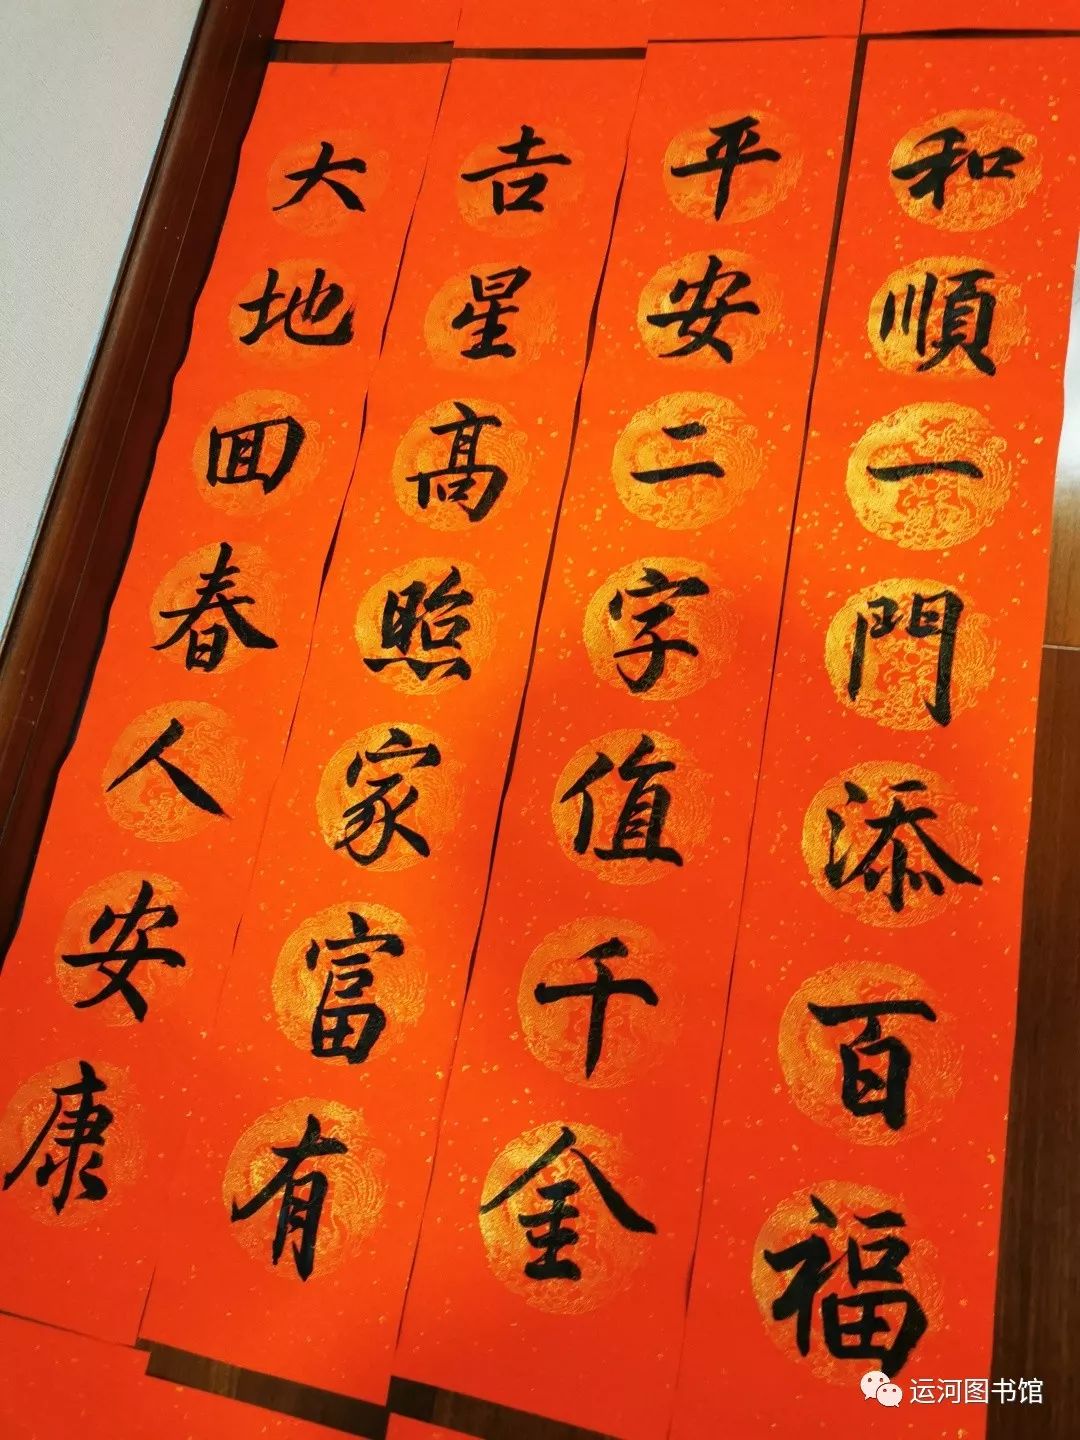 和順一門添百福
平安二字值千金
吉星高照家富有
大地回春人安康
运河图书馆